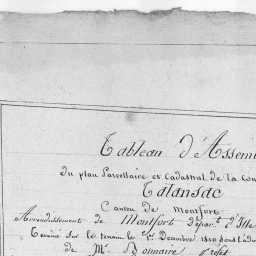 Tableau d'Assem
du plan Parcellaire et Cadastral de la Com
Talansac
Canton de Montfort
Arrondissement de Montfort Départ.t d'Ille
Terminé sur le terrain le 1er Décembre sous l'ad
de Mr. Bonnaire Préfet